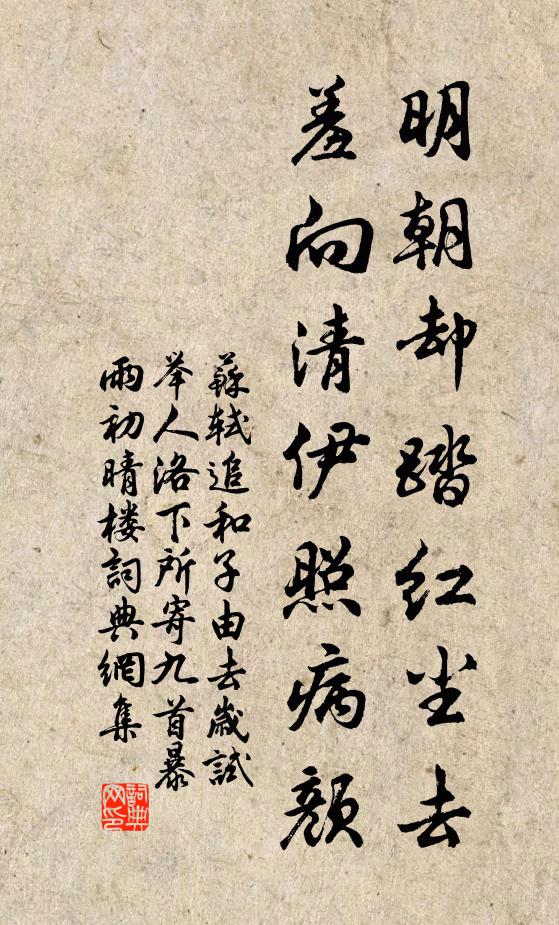 明朝却踏红尘去
羞向清伊照病颜
蘇軾追和子由去歲試
举人洛下所寄九首暴
雨初晴楼詞典網集
詞典
网印